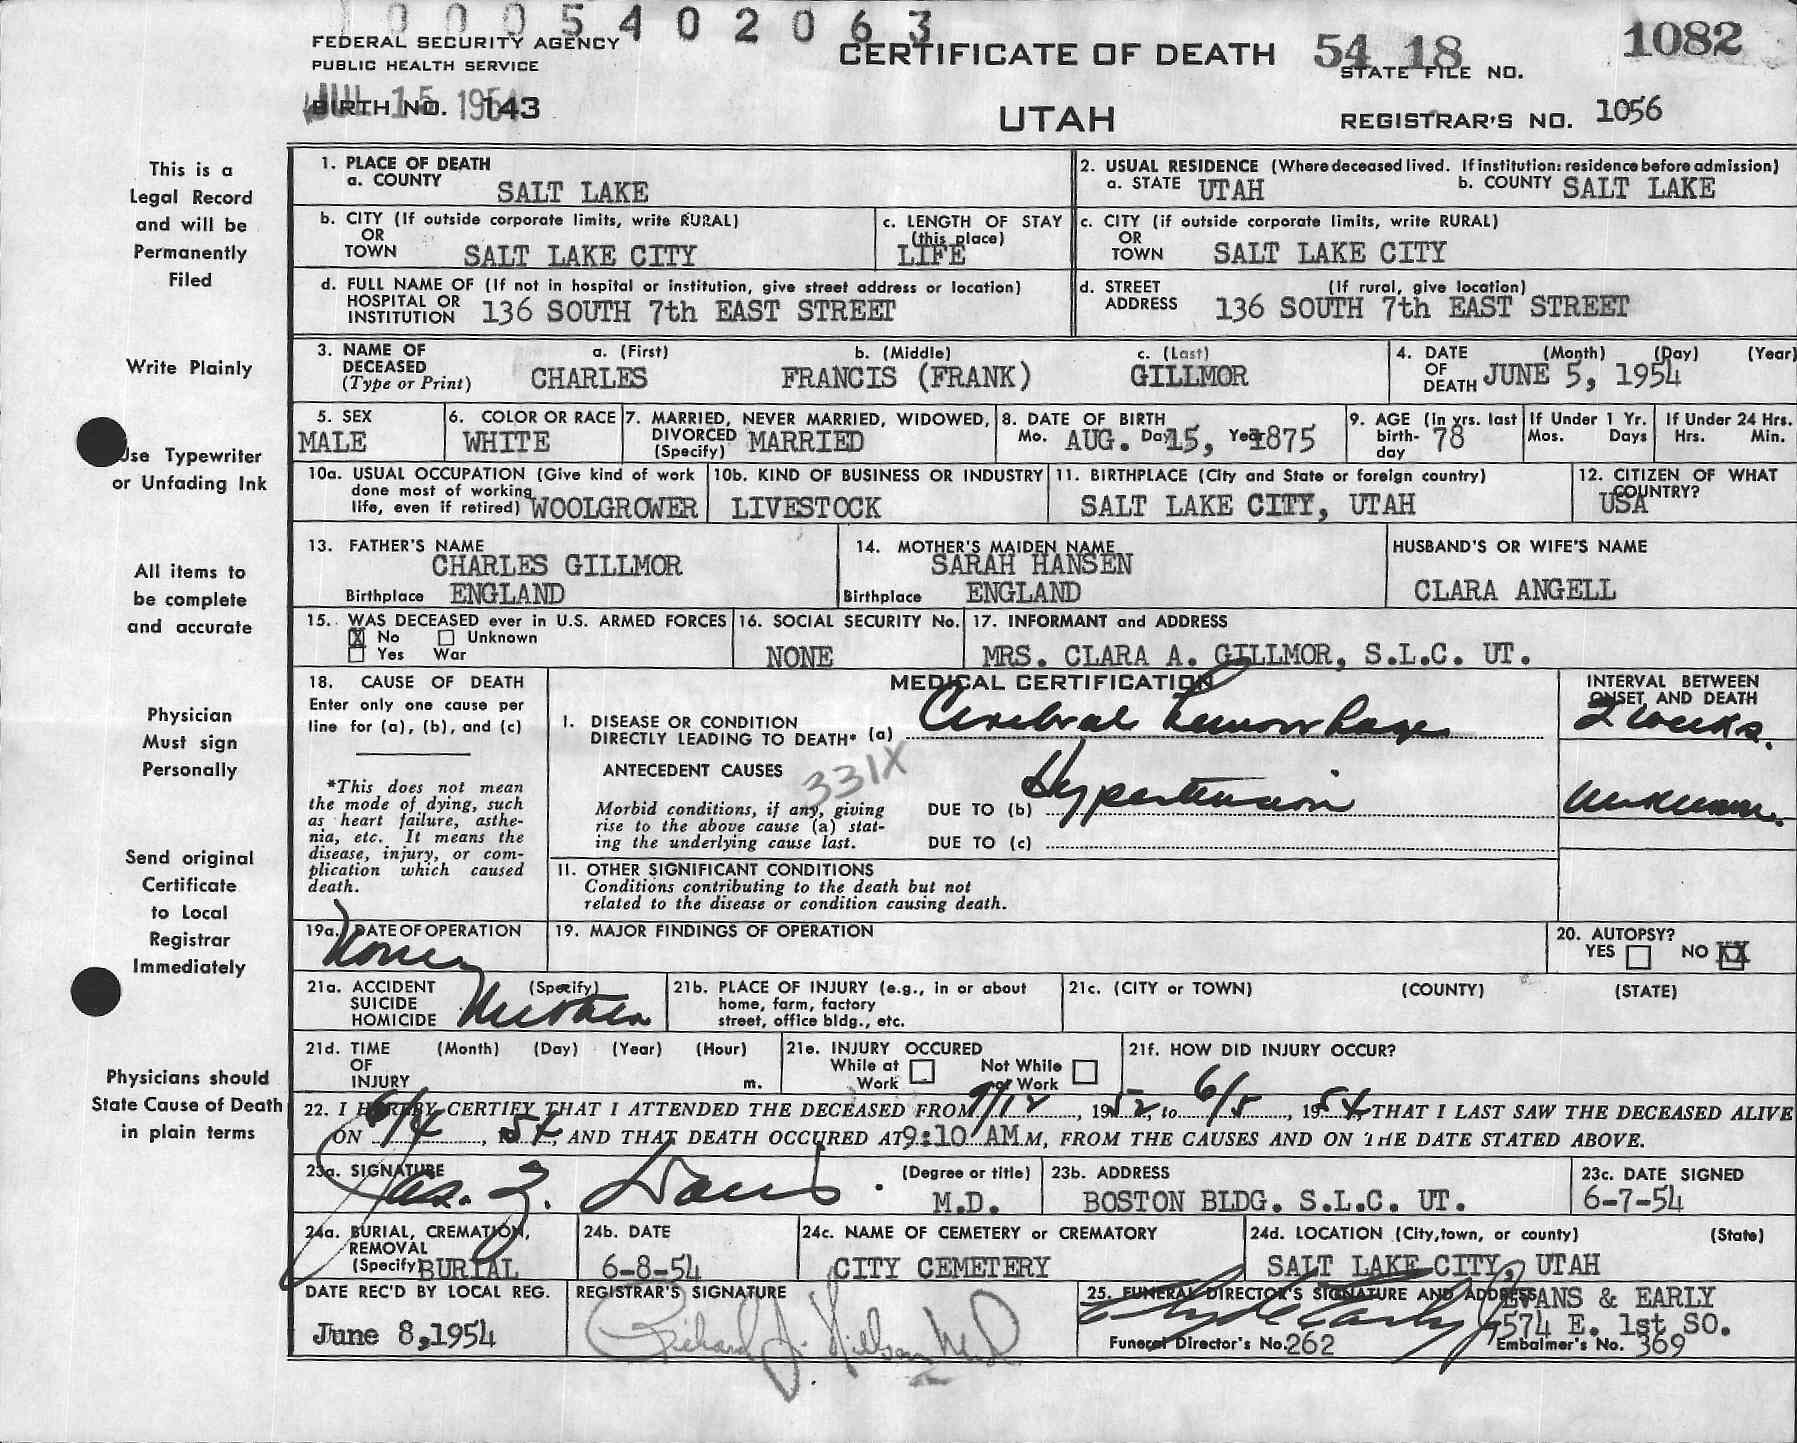 0005402063
FEDERAL SECURITY AGENCY
PUBLIC HEALTH SERVICE
CERTIFICATE OF DEATH
54 18 1082
STATE FILE NO.
JUL 15 1954
BIRTH NO. 143
UTAH
REGISTRAR'S NO. 1056
This is a
Legal Record
and will be
Permanently
Filed
Write Plainly
Use Typewriter
or Unfading Ink
All items to
be complete
and accurate
Physician
Must sign
Personally
Send original
Certificate
to Local
Registrar
Immediately
Physicians should
State Cause of Death
in plain terms
1. PLACE OF DEATH
a. COUNTY SALT LAKE
2. USUAL RESIDENCE (Where deceased lived. If institution: residence before admission)
a. STATE UTAH b. COUNTY SALT LAKE
b. CITY (If outside corporate limits, write RURAL)
OR
TOWN SALT LAKE CITY
c. LENGTH OF STAY
(this place)
LIFE
c. CITY (if outside corporate limits, write RURAL)
OR
TOWN SALT LAKE CITY
d. FULL NAME OF (If not in hospital or institution, give street address or location)
HOSPITAL OR
INSTITUTION 136 SOUTH 7th EAST STREET
d. STREET (If rural, give location)
ADDRESS 136 SOUTH 7th EAST STREET
3. NAME OF a. (First) b. (Middle) c. (Last)
DECEASED
(Type or Print) CHARLES FRANCIS (FRANK) GILLMOR
4. DATE (Month) (Day) (Year)
OF
DEATH JUNE 5, 1954
5. SEX
MALE
6. COLOR OR RACE
WHITE
7. MARRIED, NEVER MARRIED, WIDOWED,
DIVORCED
(Specify) MARRIED
8. DATE OF BIRTH
Mo. AUG. Day 15, Year 1875
9. AGE (In yrs. last
birth-
day 78
If Under 1 Yr.
Mos. Days
If Under 24 Hrs.
Hrs. Min.
10a. USUAL OCCUPATION (Give kind of work
done most of working
life, even if retired) WOOLGROWER
10b. KIND OF BUSINESS OR INDUSTRY
LIVESTOCK
11. BIRTHPLACE (City and State or foreign country)
SALT LAKE CITY, UTAH
12. CITIZEN OF WHAT
COUNTRY?
USA
13. FATHER'S NAME
CHARLES GILLMOR
Birthplace ENGLAND
14. MOTHER'S MAIDEN NAME
SARAH HANSEN
Birthplace ENGLAND
HUSBAND'S OR WIFE'S NAME
CLARA ANGELL
15. WAS DECEASED ever in U.S. ARMED FORCES
X No Unknown
Yes War
16. SOCIAL SECURITY No.
NONE
17. INFORMANT and ADDRESS
MRS. CLARA A. GILLMOR, S.L.C. UT.
18. CAUSE OF DEATH
Enter only one cause per
line for (a), (b), and (c)
*This does not mean
the mode of dying, such
as heart failure, asthe-
nia, etc. It means the
disease, injury, or com-
plication which caused
death.
MEDICAL CERTIFICATION
I. DISEASE OR CONDITION
DIRECTLY LEADING TO DEATH* (a) Cerebral hemorrhage
ANTECEDENT CAUSES
331X
Morbid conditions, if any, giving
rise to the above cause (a) stat-
ing the underlying cause last.
DUE TO (b) Hypertension
DUE TO (c)
INTERVAL BETWEEN
ONSET AND DEATH
2 weeks.
unknown.
11. OTHER SIGNIFICANT CONDITIONS
Conditions contributing to the death but not
related to the disease or condition causing death.
19a. DATE OF OPERATION
None
19. MAJOR FINDINGS OF OPERATION
20. AUTOPSY?
YES NO XX
21a. ACCIDENT (Specify)
SUICIDE
HOMICIDE Neither
21b. PLACE OF INJURY (e.g., in or about
home, farm, factory
street, office bldg., etc.
21c. (CITY or TOWN) (COUNTY) (STATE)
21d. TIME (Month) (Day) (Year) (Hour)
OF
INJURY m.
21e. INJURY OCCURED
While at Not While
Work or Work
21f. HOW DID INJURY OCCUR?
22. I HEREBY CERTIFY THAT I ATTENDED THE DECEASED FROM 9/12, 1952, to 6/5, 1954, THAT I LAST SAW THE DECEASED ALIVE
ON 6/4, 1954, AND THAT DEATH OCCURED AT 9:10 AM.M, FROM THE CAUSES AND ON THE DATE STATED ABOVE.
23a. SIGNATURE (Degree or title)
Jas. Z. Davis. M.D.
23b. ADDRESS
BOSTON BLDG. S.L.C. UT.
23c. DATE SIGNED
6-7-54
24a. BURIAL, CREMATION,
REMOVAL
(Specify) BURIAL
24b. DATE
6-8-54
24c. NAME OF CEMETERY or CREMATORY
CITY CEMETERY
24d. LOCATION (City, town, or county) (State)
SALT LAKE CITY, UTAH
DATE REC'D BY LOCAL REG.
June 8, 1954
REGISTRAR'S SIGNATURE
Richard J. M.D.
25. FUNERAL DIRECTOR'S SIGNATURE AND ADDRESS
EVANS & EARLY
574 E. 1st SO.
Funeral Director's No. 262 Embalmer's No. 369